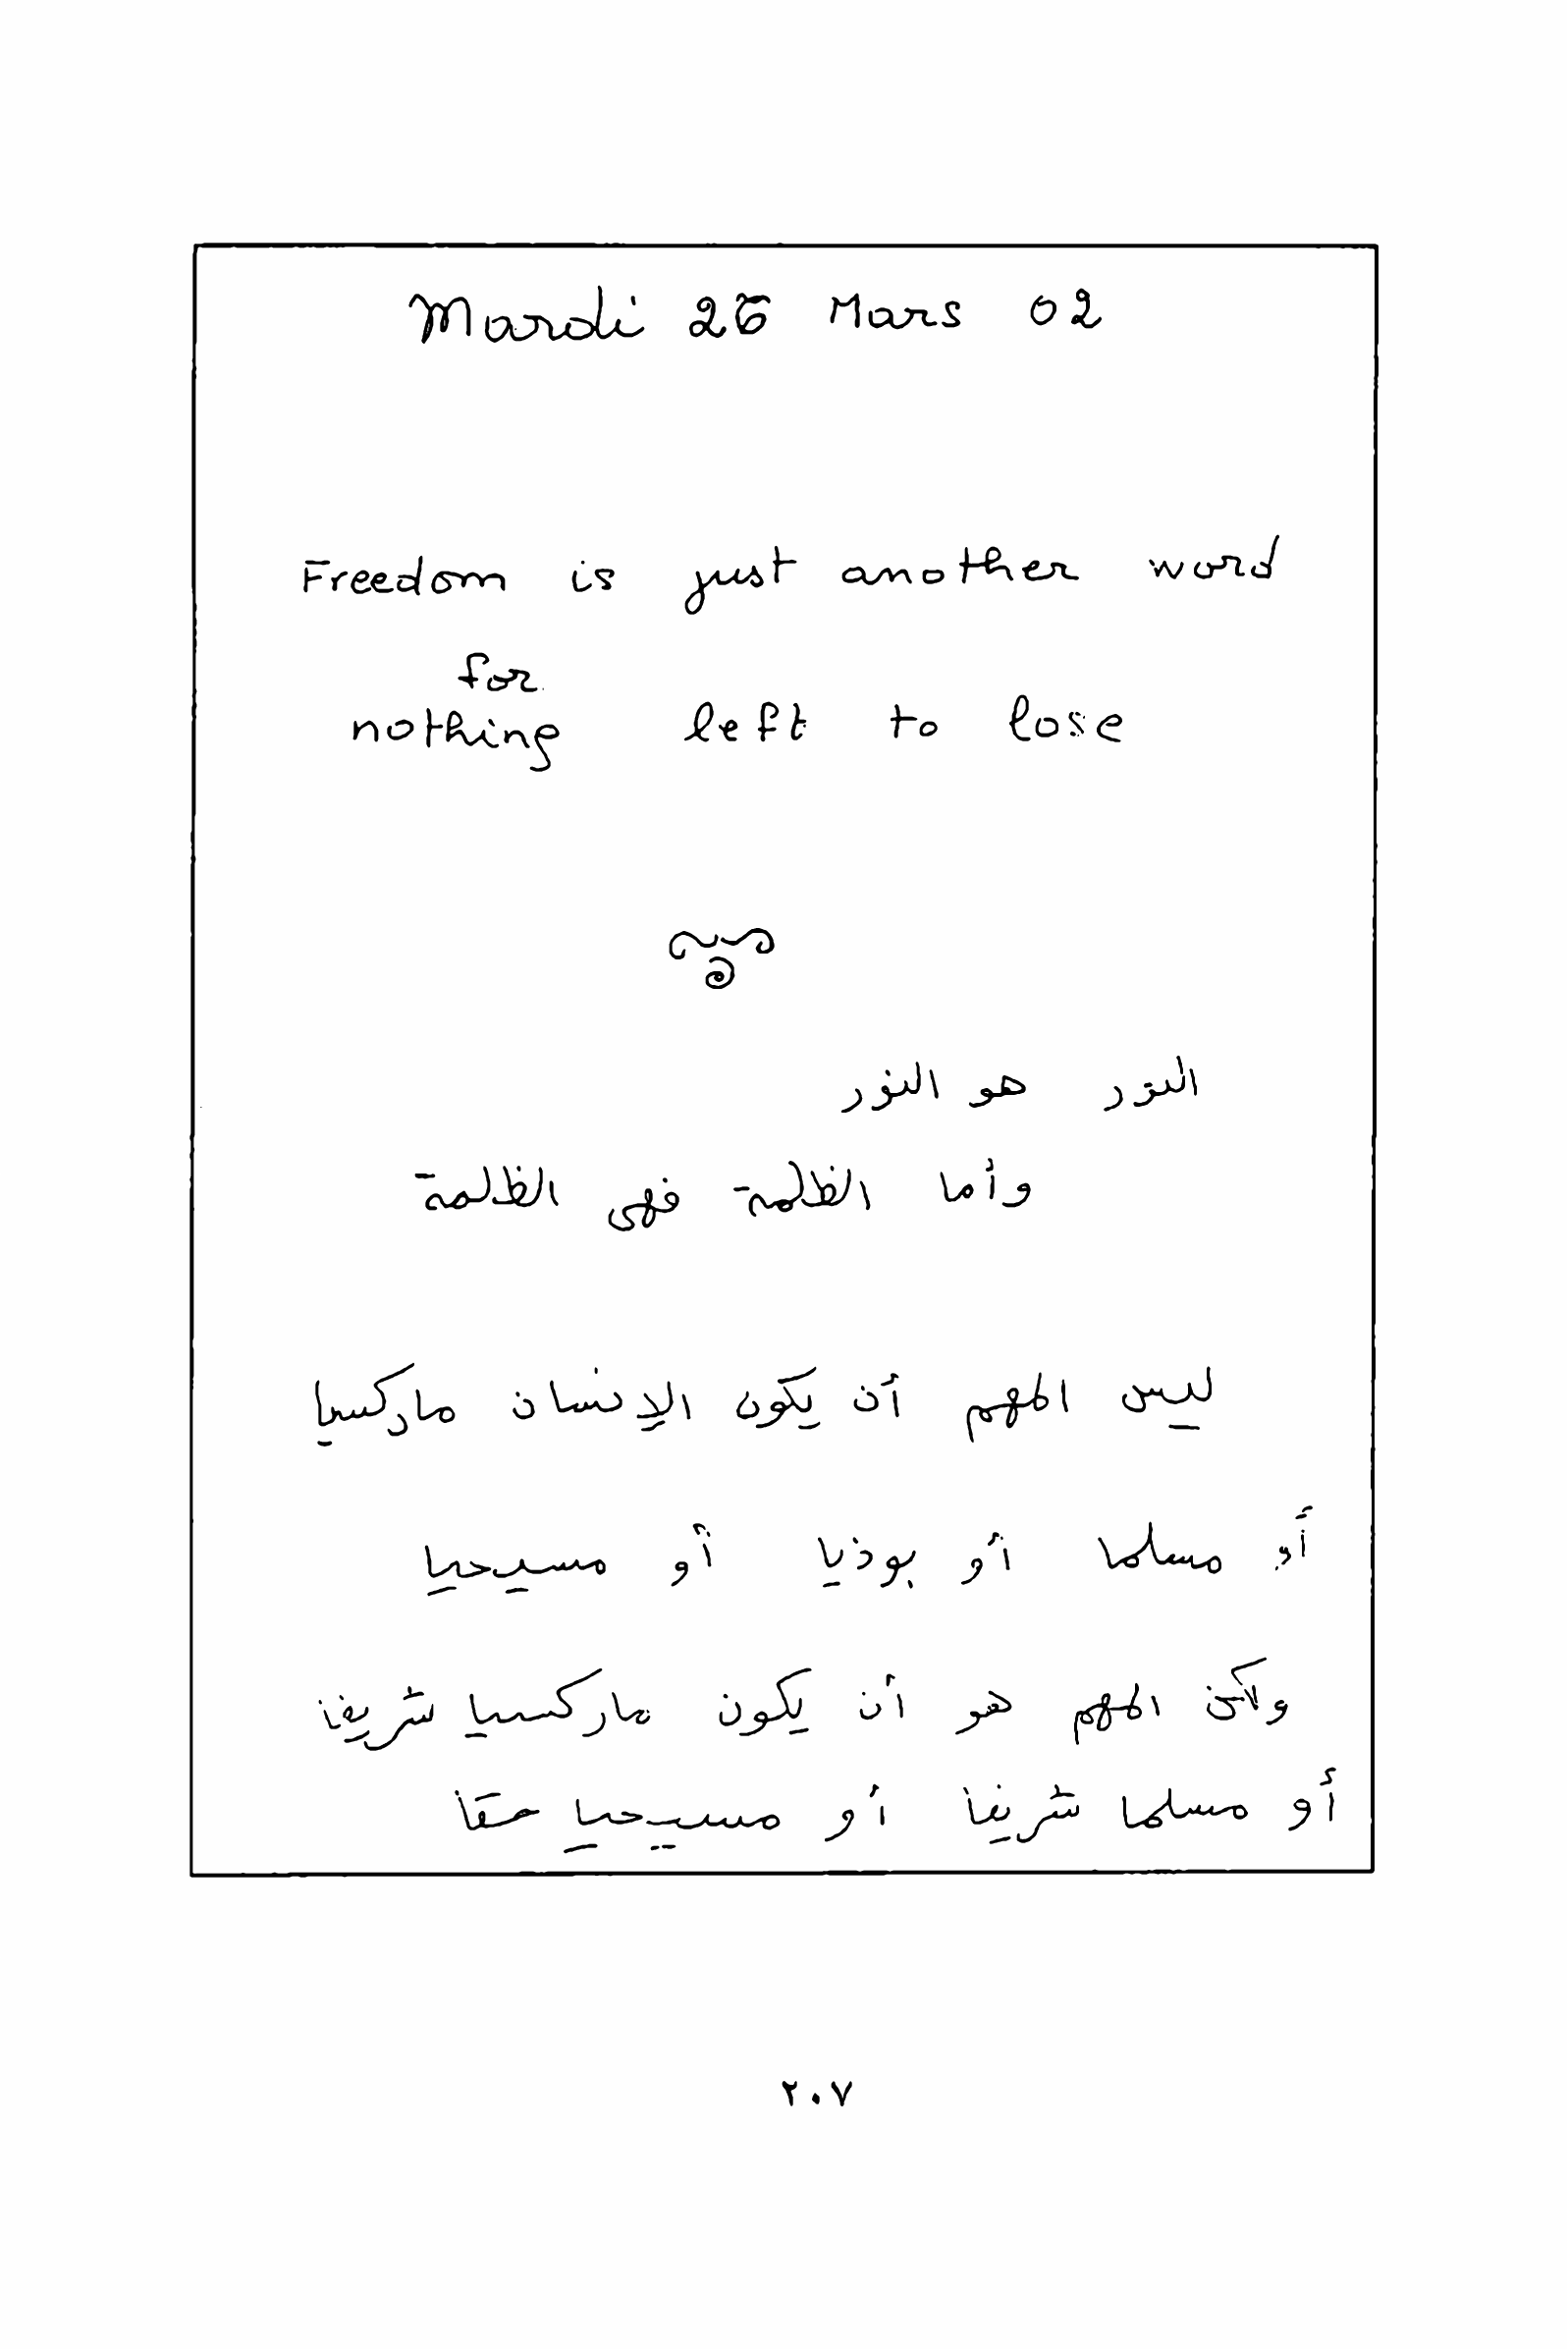 Mardi 26 Mars 02
Freedom is just another word
for
nothing left to lose
النور هو النور
وأما الظلمة فهى الظلمة
ليس المهم أن يكون الإنسان ماركسيا
أو مسلما أو بوذيا أو مسيحيا
ولكن المهم هو أن يكون ماركسيا شريفا
أو مسلما شريفا أو مسيحيا حقا
٢٠٧